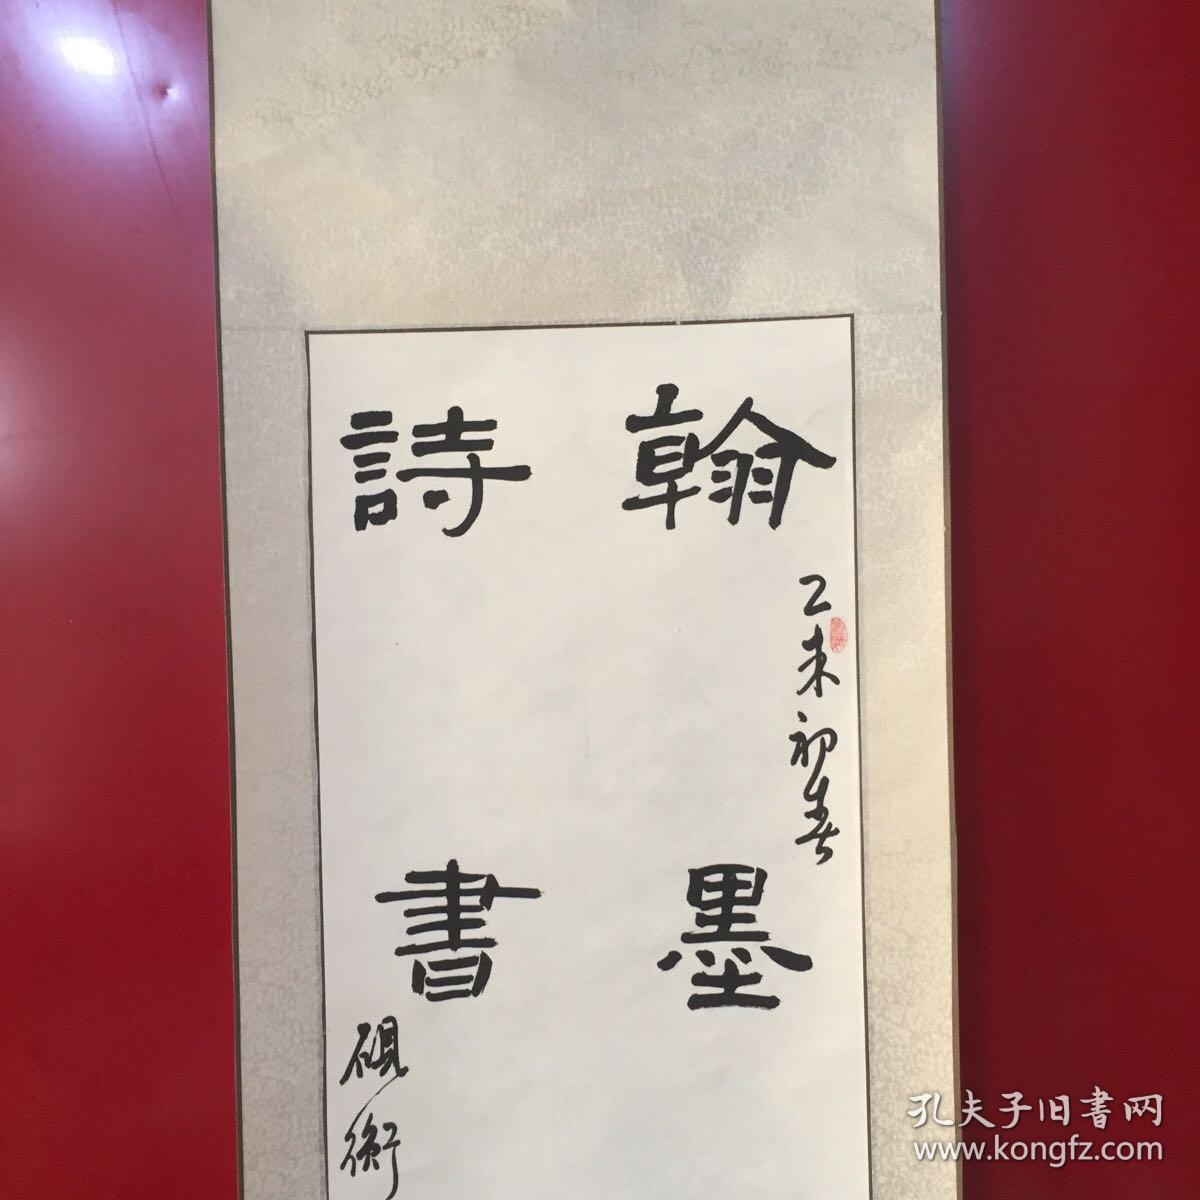 翰墨
詩書
乙未初春
硯衡
孔夫子旧書网
www.kongfz.com